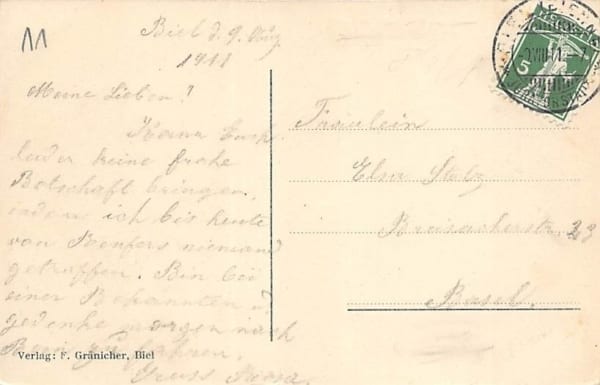 11
Biel d. 9. Aug
1911
Meine Lieben!
Kann Euch
leider keine frohe
Botschaft bringen,
indem ich bis heute
von niemand
getroffen. Bin bei
einer Bekannten &
gedenke morgen nach
Bern zu fahren.
Gruss
Fräulein
Elsa Stolz
Breisacherstr. 23
Basel.
HELVETIA
5
Verlag: F. Gränicher, Biel